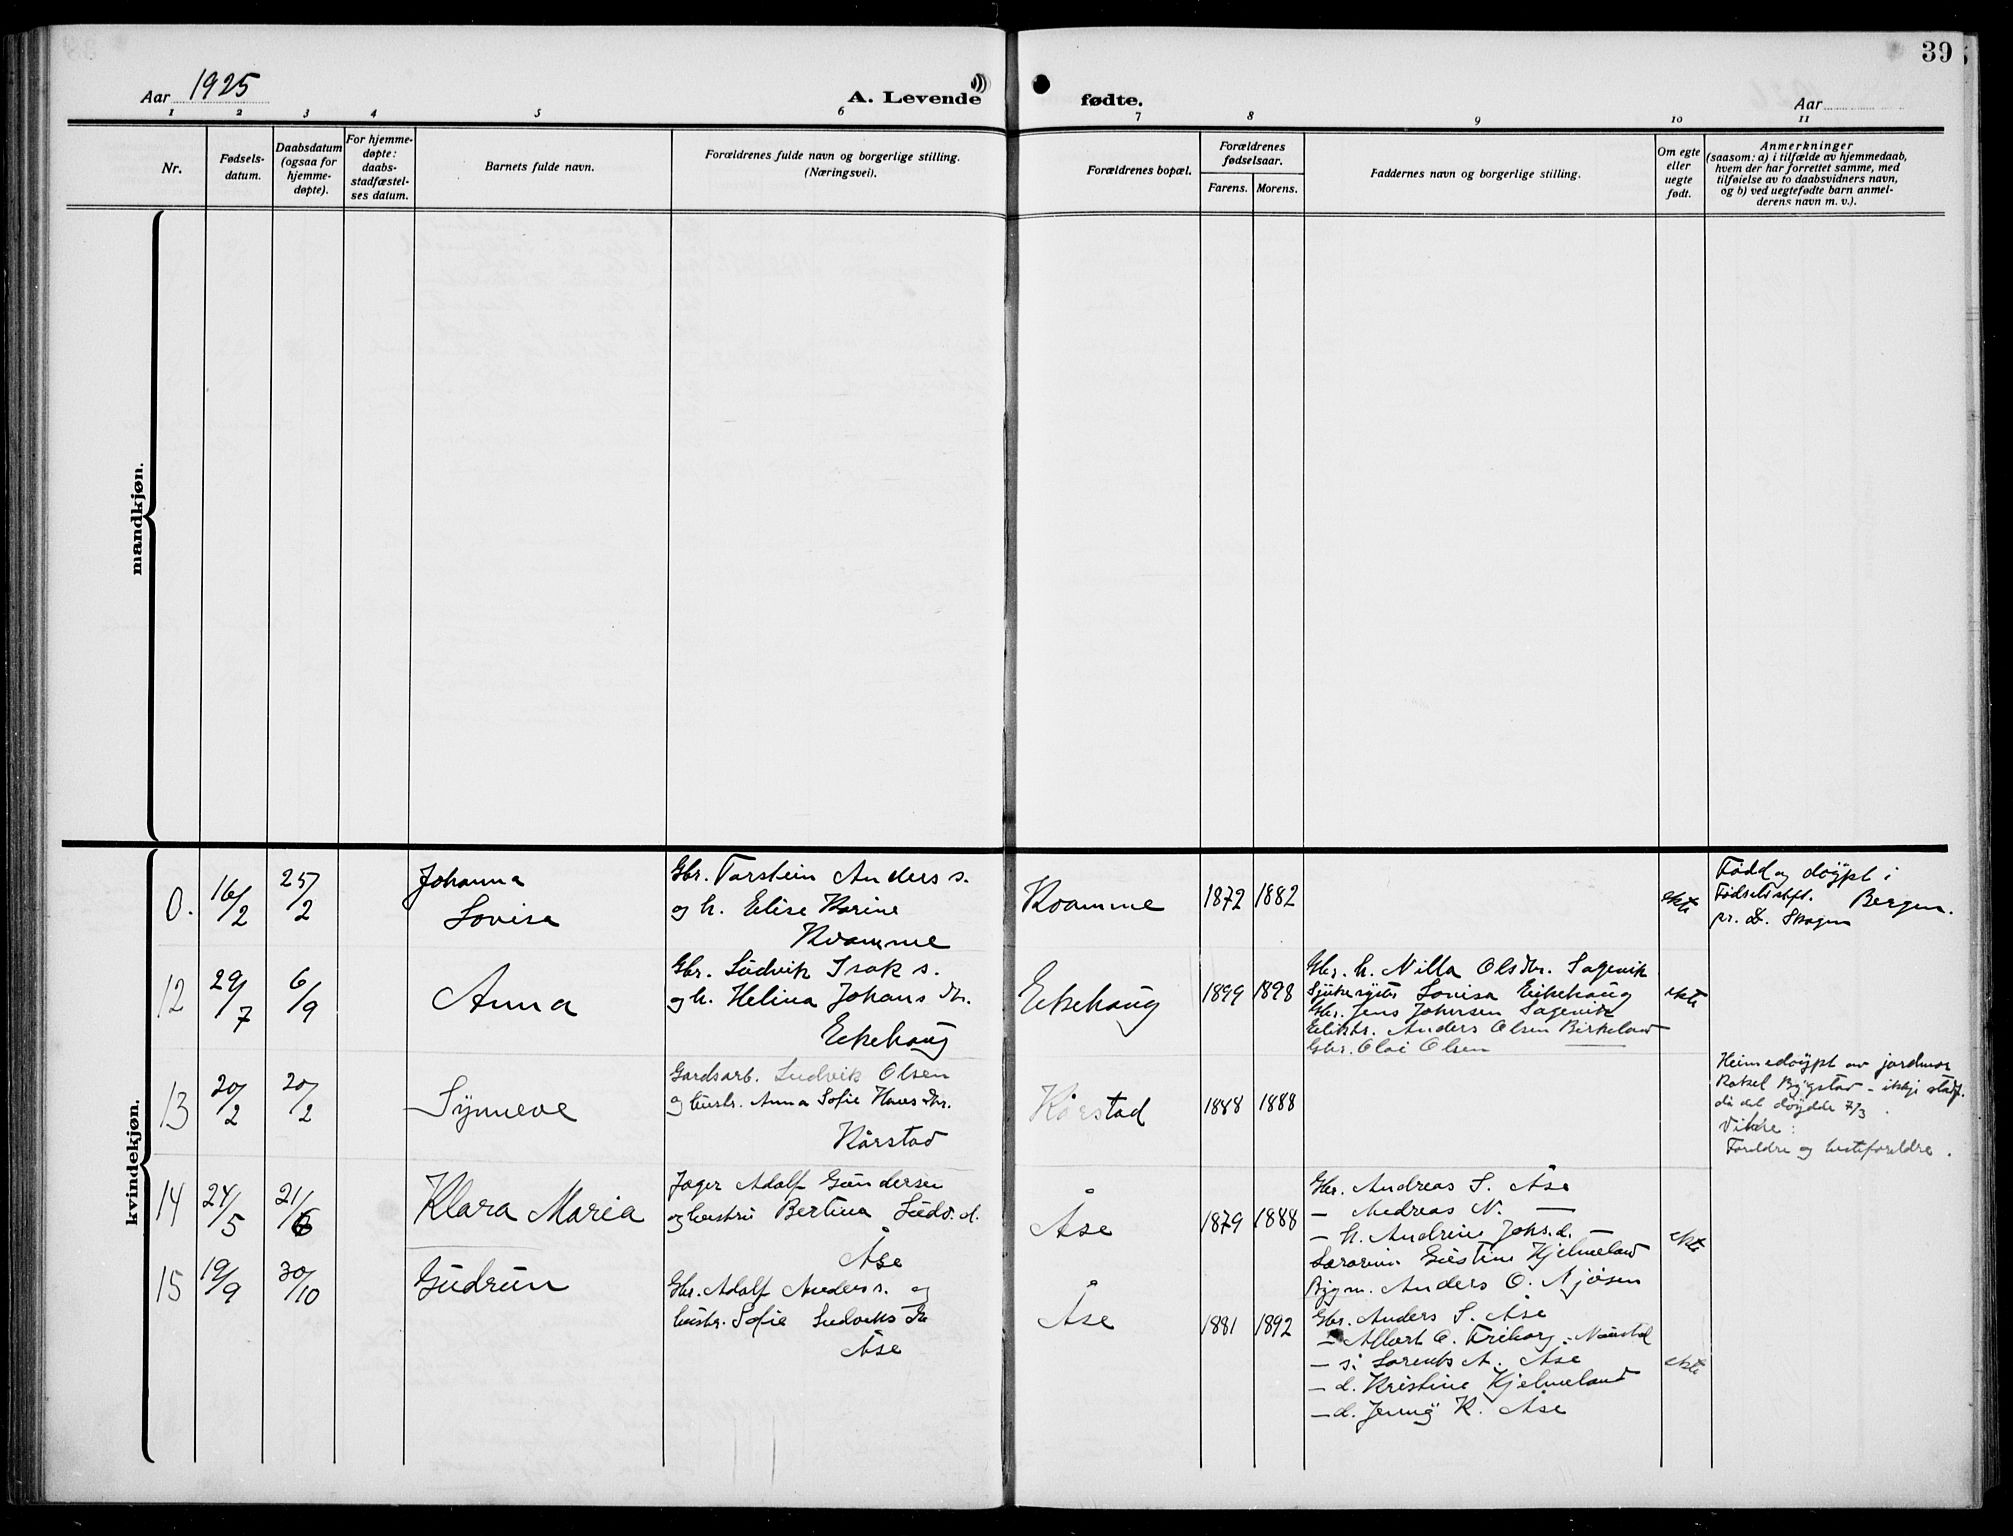 39
Aar 1925
A. Levende
fødte.
Aar
1 2 3 4 5 6 7 8 9 10 11
Nr.
Fødsels-
datum.
Daabsdatum
(ogsaa for
hjemme-
døpte).
For hjemme-
døpte:
daabs-
stadfæstel-
ses datum.
Barnets fulde navn.
Forældrenes fulde navn og borgerlige stilling.
(Næringsvei).
Forældrenes bopæl.
Forældrenes
fødselsaar.
Farens. Morens.
Faddernes navn og borgerlige stilling.
Om egte
eller
uegte
født.
Anmerkninger
(saasom: a) i tilfælde av hjemmedaab,
hvem der har forrettet samme, med
tilføielse av to daabsvidners navn,
og b) ved uegtefødte barn anmel-
derens navn m. v.).
mandkjøn.
kvindekjøn.
0.
16/2
25/2
Johanna
Lovise
Gbr. Torstein Anders s.
og h. Elise Karine
Kvamme
Kvamme
1872 1882
ekte
Fødd og døypt i
Fødselsstift. Bergen.
pr. D. Skagen
12
29/7
6/9
Anna
Gbr. Ludvik Isak s.
og h. Helina Johans dtr.
Eikehaug
Eikehaug
1899 1898
Gbr. h. Nilla Olsdtr. Sagevik
Sjukesyster Lovisa Eikehaug
Gbr. Jens Johnsen Sagevik
Anders Olsen Birkeland
Gbr. Olai Olsen
ekte
13
20/2
20/2
Synneve
Gardsarb. Ludvik Olsen
og hustr. Anna Sofie Hans dtr.
Kårstad
Kårstad
1888 1888
Heimedøypt av jordmor
Rakel Bygstad - ikkje stadf.
då det døydde 7/3.
Vitne:
Foreldre og besteforeldre.
14
24/5
21/6
Klara Maria
Jager Adolf Gundersen
og hustru Bertina Ludv. d.
Åse
Åse
1879 1888
Gbr. Andreas S. Åse
— Andreas N. —
— h. Andrine Johs.d. —
Lærarinne Hjelmeland
Bygm. Anders O. Njøsen
ekte
15
19/9
30/10
Gudrun
Gbr. Adolf Anders s. og
hustr. Sofie Ludviks dtr
Åse
Åse
1881 1892
Gbr. Anders S. Åse
— Albert O. Friborg, Naustdal
— s. Lorents A. Åse
— d. Kristine Hjelmeland
— d. Jenny K. Åse
ekte